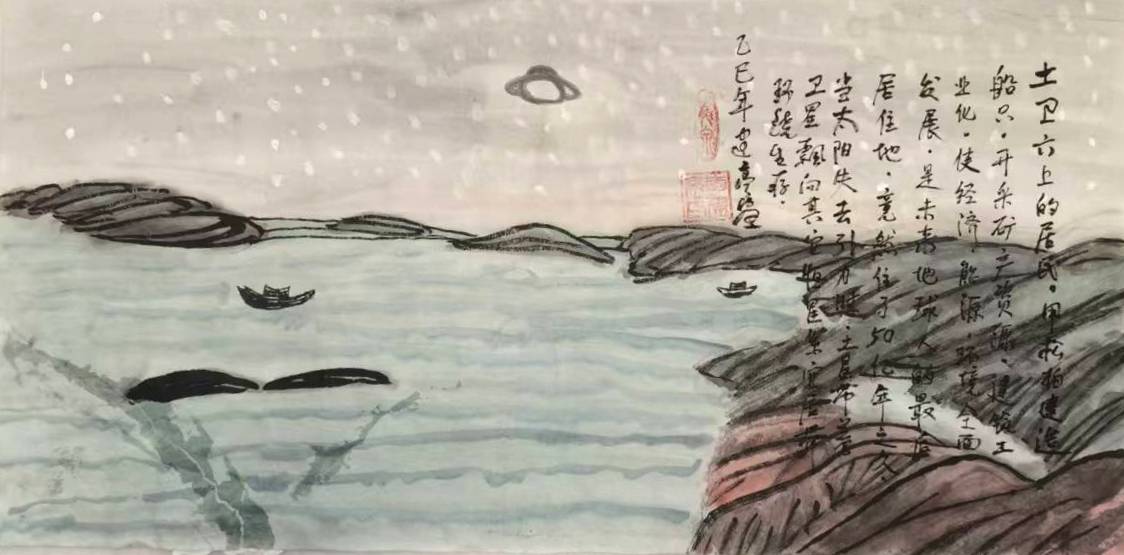 土卫六上的居民。用松柏建造
船只。开采矿产资源。建筑工
业化。使经济、能源、环境全面
发展。是未来地球人的最后
居住地。竟然住了50亿年之久。
当太阳失去引力避。土星带着
卫星飘向其它恒星系。宜居带
环绕生存。
乙巳年建亭